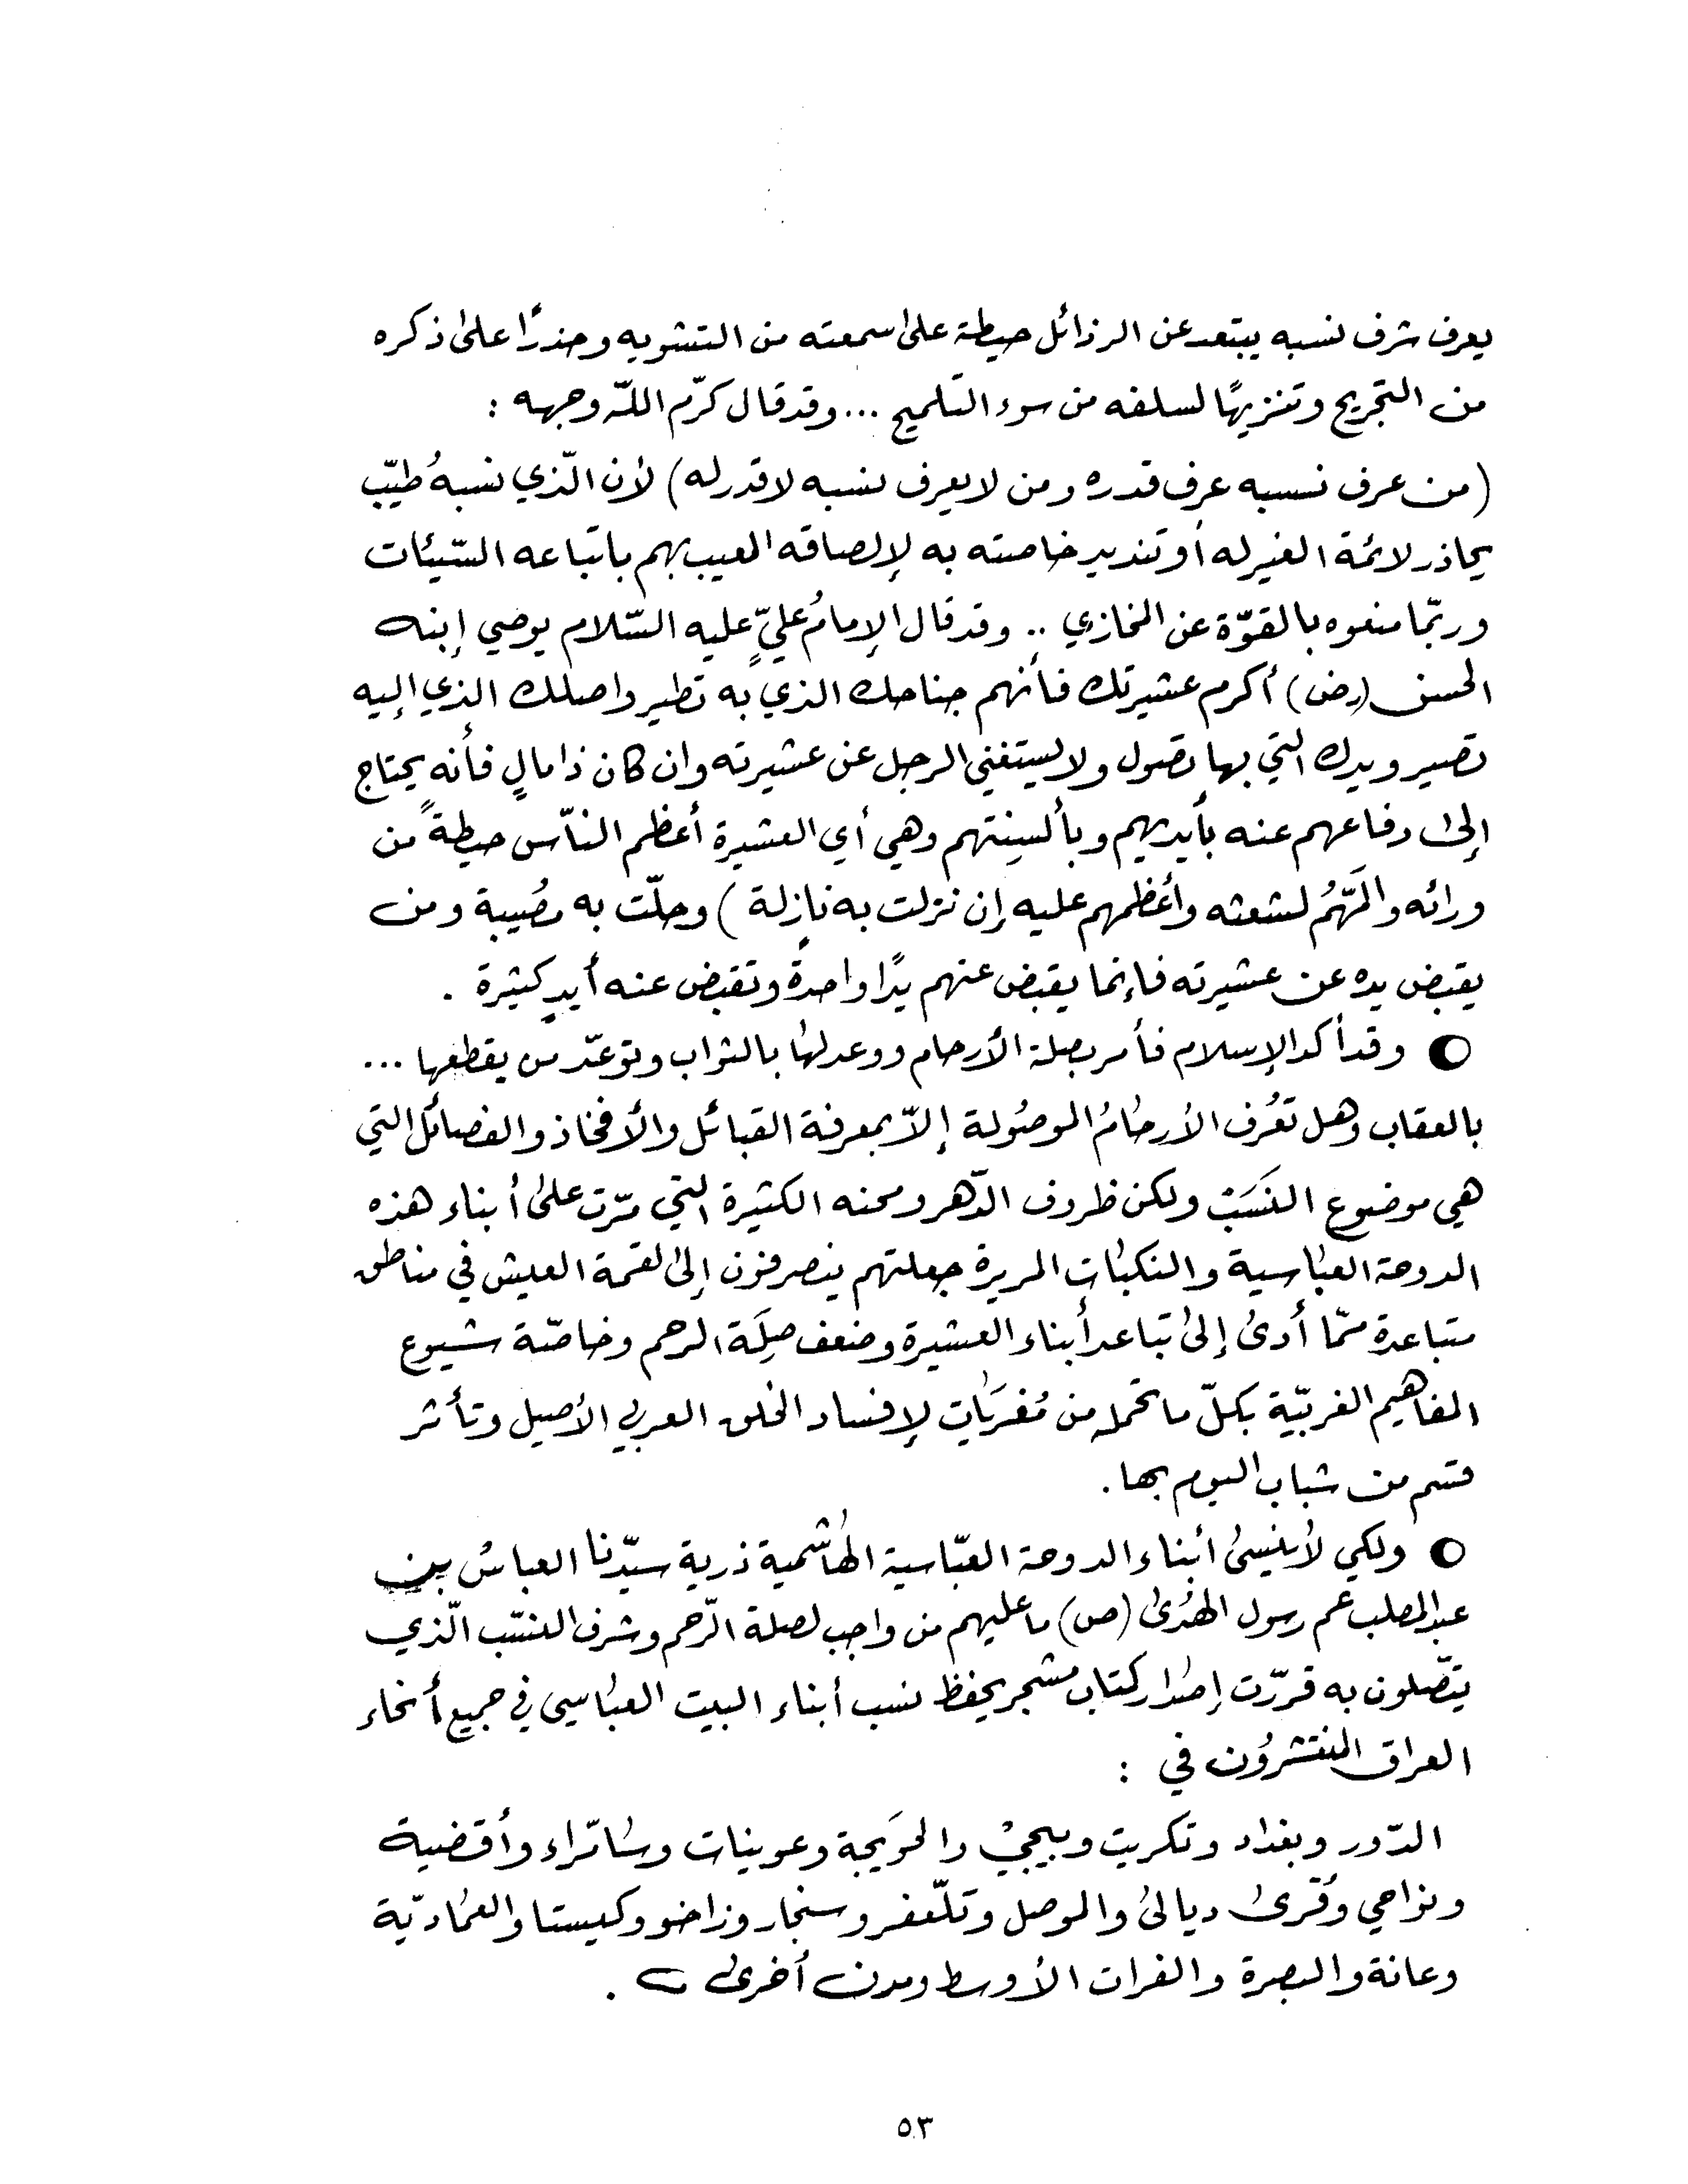 يعرف شرف نسبه يبتعد عن الرذائل حيطة على سمعته من التشويه وحذرًا على ذكره
من التجريح وتنزيهًا لسلفه من سوء التلميح ... وقد قال كرّم اللّه وجهه :
(من عرف نسبه عرف قدره ومن لا يعرف نسبه لا قدر له) لأن الّذي نسبهُ طيّب
يحاذر لائمة الغير له أو تنديد خاصته به لإلصاقه العيب بهم باتباعه السّيئات
وربّما منعوه بالقوّة عن المخازي .. وقد قال الإمامُ عليّ عليه السّلام يوصي إبنه
الحسن (رض) أكرم عشيرتك فأنهم جناحك الذي به تطير واصلك الذي إليه
تصير ويدك التي بها تصول ولا يستغني الرجل عن عشيرته وان كان ذا مالٍ فأنه يحتاج
إلى دفاعهم عنه بأيديهم وبألسِنتهم وهي أي العشيرة أعظم النّاس حيطةً من
ورائه والمّهُم لشعثه وأعظمهم عليه إن نزلت به نازلة ) وحلّت به مصُيبة ومن
يقبض يده عن عشيرته فإنما يقبض عنهم يدًا واحدةً وتقبض عنه أيدٍ كثيرة .
وقد أكد الإسلام فأمر بصلة الأرحام ووعد لها بالثواب وتوعّد من يقطعها ...
بالعقاب وهل تعُرف الأرحامُ الموصُولة إلاّ بمعرفة القبائل والأفخاذ والفصائل التي
هي موضوع النسَب ولكن ظروف الدّهر ومحنه الكثيرة التي مرّت على أبناء هذه
الدوحة العباسية والنكبات المريرة جعلتهم ينصرفون إلى لقمة العيش في مناطق
متباعدة ممّا أدى إلى تباعد أبناء العشيرة وضعف صِلَة الرحم وخاصّة شيوع
المفاهيم الغربيّة بكلّ ما تحمله من مُغرَيات لإفساد الخلق العربي الأصيل وتأثر
قسم من شباب اليوم بها .
ولكي لا ينسى أبناء الدوحة العبّاسية الهاشمية ذرية سيّدنا العباسُ بن
عبد المطلب عم رسول الهُدى (ص) ما عليهم من واجب لصلة الرّحم وشرف النسّب الّذي
يتّصلون به قررّت إصدار كتاب مشجر يحفظ نسب أبناء البيت العباسي في جميع أنحاء
العراق المنتشرُون في :
الدّور وبغداد وتكريت وبيجي والحوَيجة وعوينات وسامّراء وأقضية
ونواحي وقُرى ديالى والموصل وتلّعفر وسنجار وزاخو وكيستا والعماديّة
وعانة والبصرة والفرات الأوسط ومدن أخرى .
٥٣